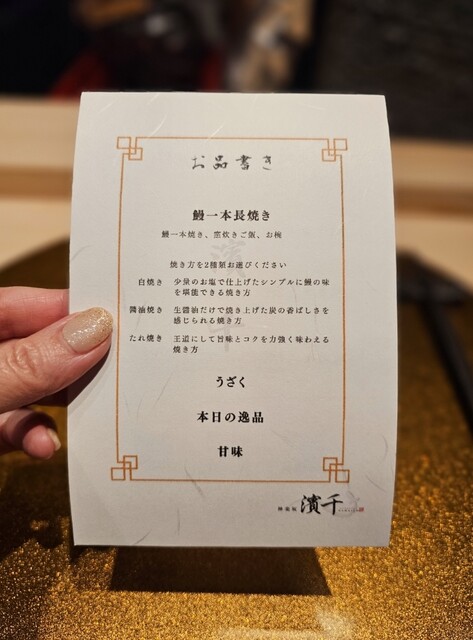 お品書き
鰻一本長焼き
鰻一本焼き、窯炊きご飯、お椀
焼き方を2種類お選びください
白焼き 少量のお塩で仕上げたシンプルに鰻の味
を堪能できる焼き方
醤油焼き 生醤油だけで焼き上げた炭の香ばしさを
感じられる焼き方
たれ焼き 王道にして旨味とコクを力強く味わえる
焼き方
うざく
本日の逸品
甘味
濱千